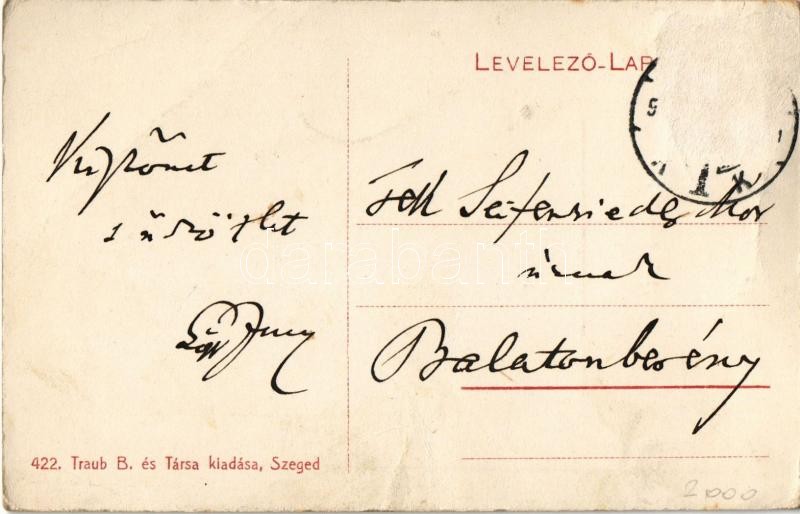 LEVELEZŐ-LAP
s üdvözlet
Seifensieder Mór
úrnak
Balatonberény
422. Traub B. és Társa kiadása, Szeged
2000
darabanth